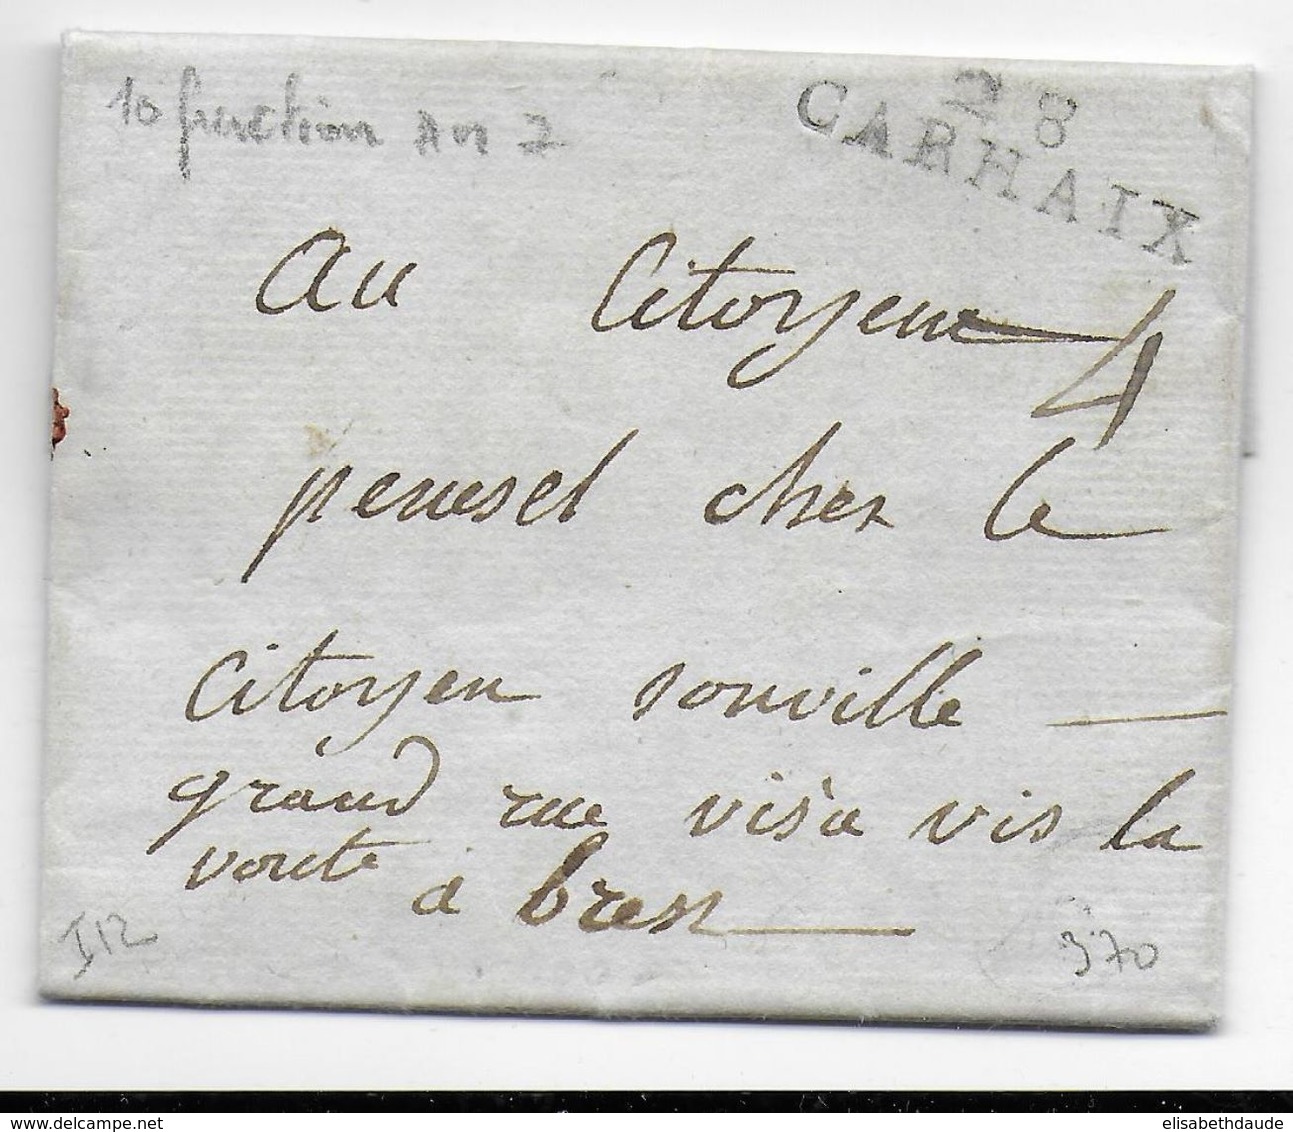 10 fructidor An 7
28
CARHAIX
Au Citoyene
4
penesel chez le
Citoyen sonville
grand rue vis à vis la
voute
à brest
I12
370
elisabethdaude